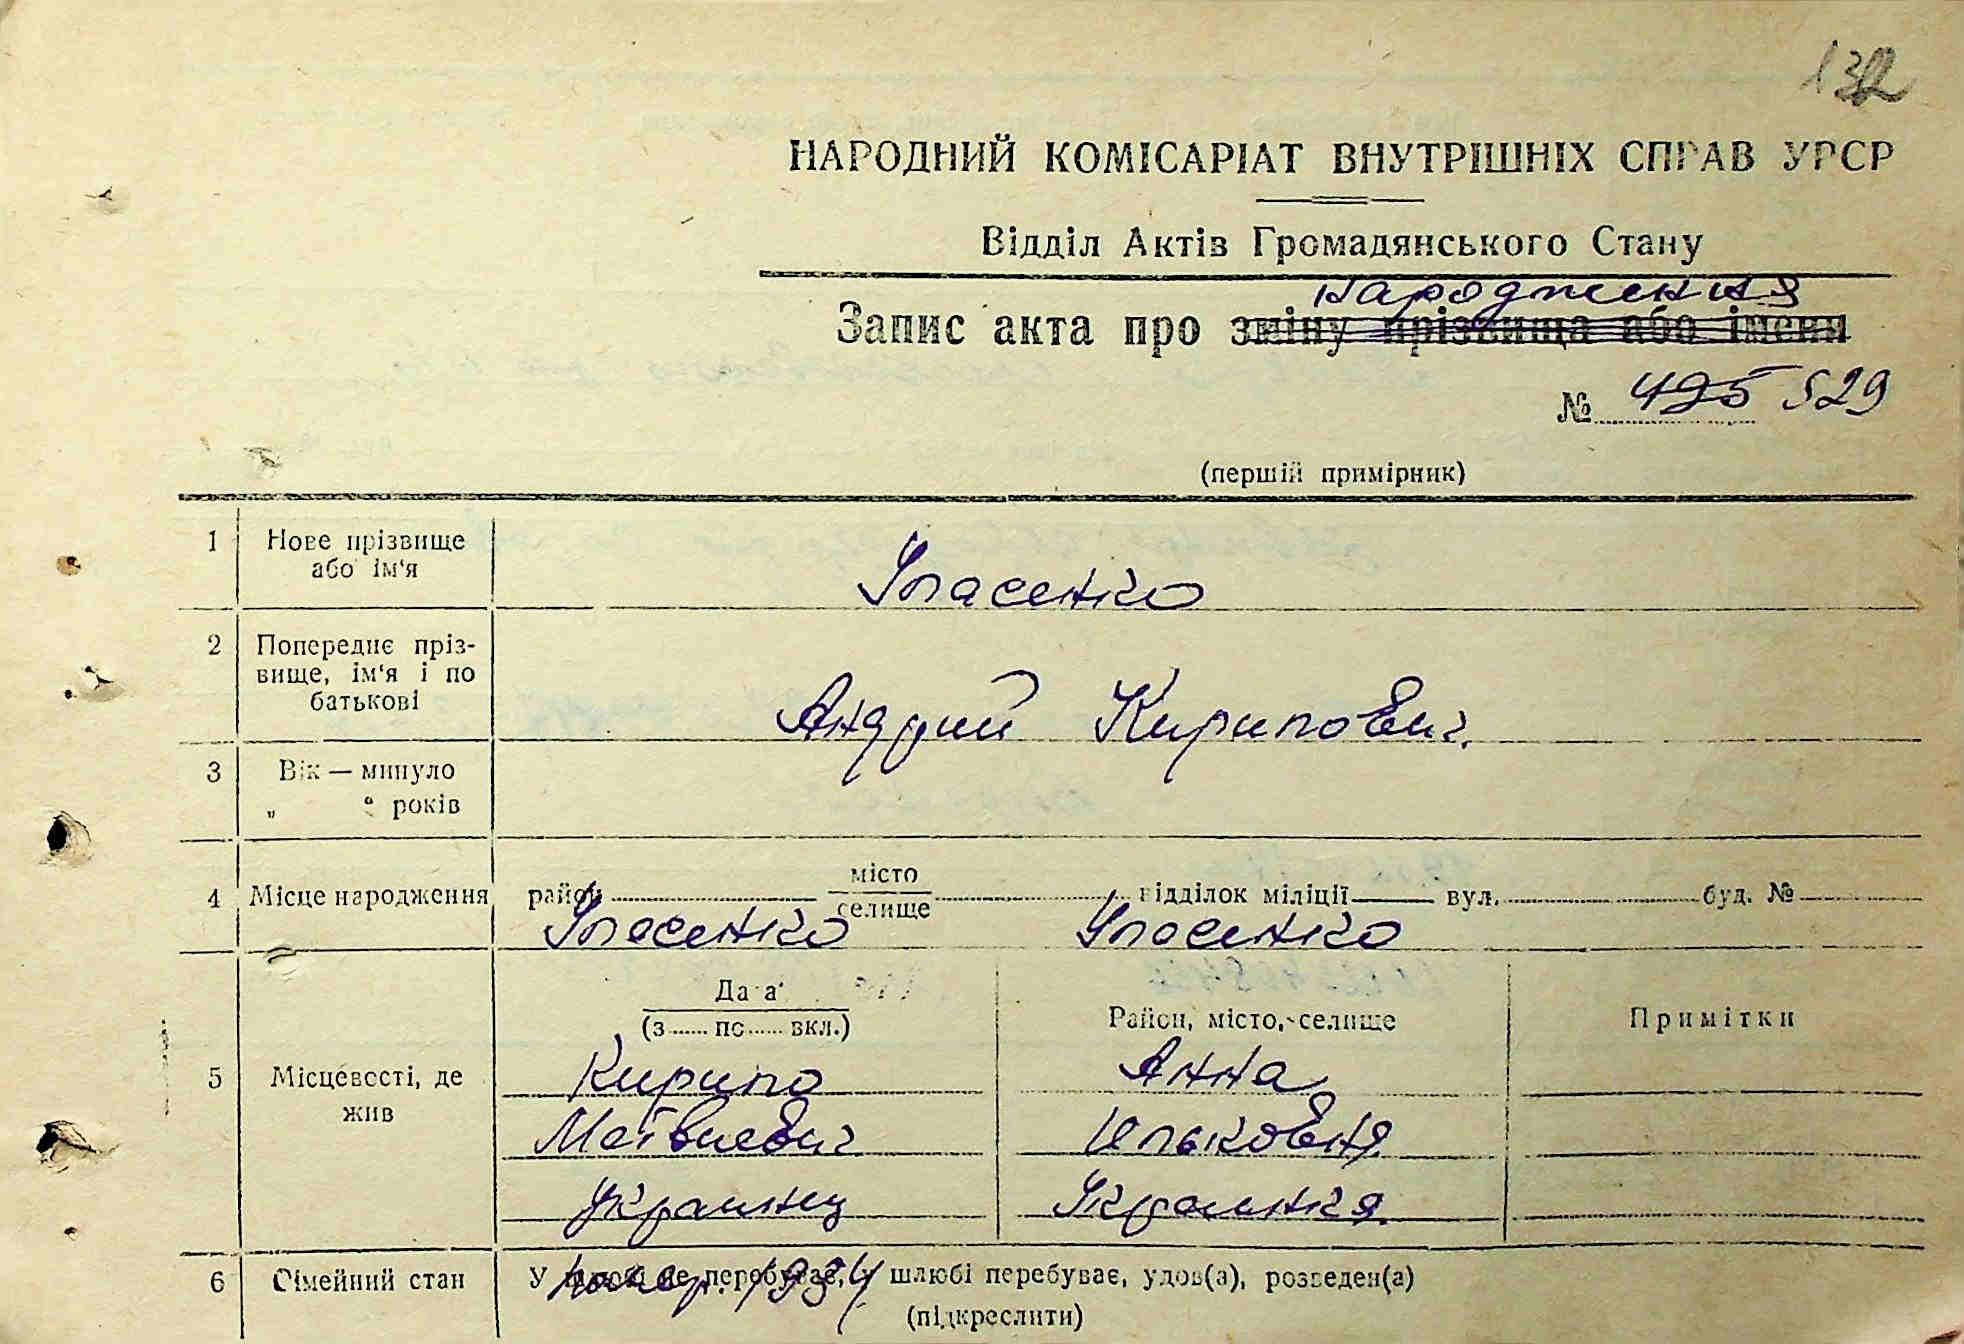 132
НАРОДНИЙ КОМІСАРІАТ ВНУТРІШНІХ СПРАВ УРСР
Відділ Актів Громадянського Стану
народження
Запис акта про зміну прізвища або імени
№ 495 529
(перший примірник)
1 Нове прізвище або ім'я
Власенко
2 Попереднє пріз-
вище, ім'я і по
батькові
Андрий Кирилович.
3 Вік — минуло
„ “ років
4 Місце народження район місто селище відділок міліції вул. буд. №
Власенко Власенко
5 Місцевості, де
жив
Дата (з ...... по ...... вкл.) Район, місто, селище Примітки
Кирило Анна
Матвиевич Ильковна
Украинец Украинка
6 Сімейний стан У шлюбі не перебуває, у шлюбі перебуває, удов(а), розведен(а)
1934
(підкреслити)